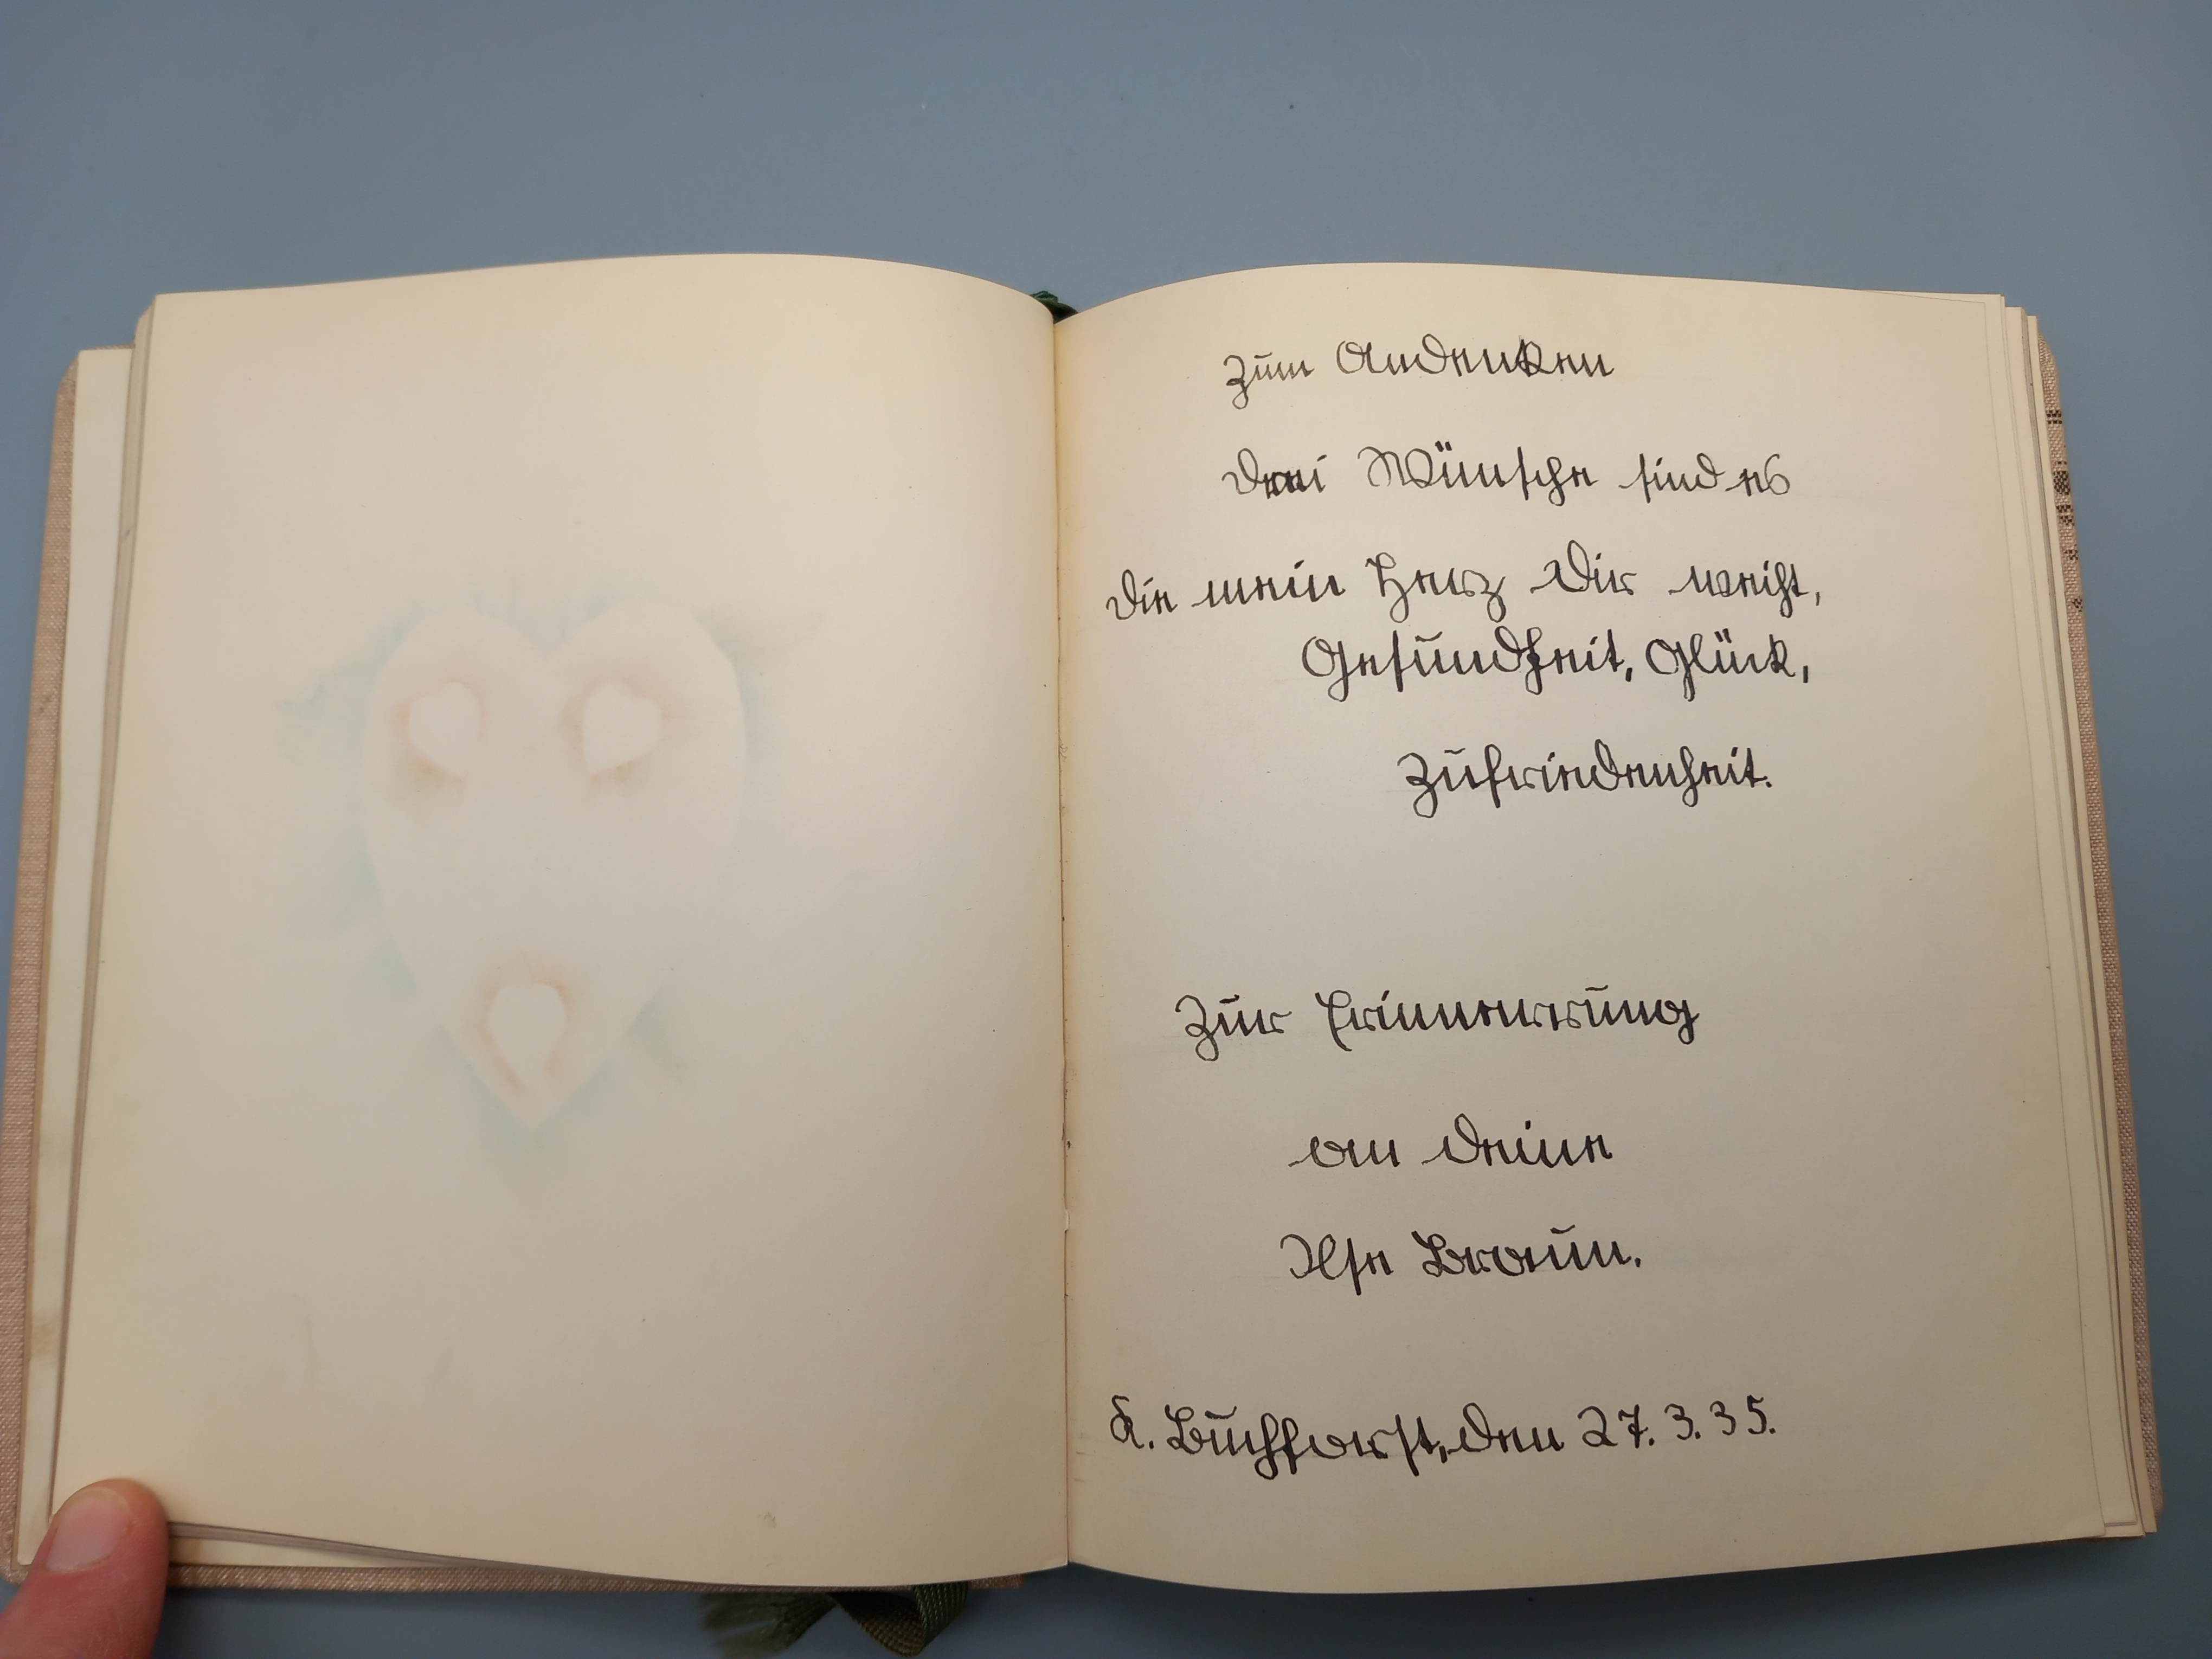 Zum Andenken
Drei Wünsche sind es
die mein Herz Dir weiht,
Gesundheit, Glück,
Zufriedenheit.
Zur Erinnerung
an deine
Ilse Braun.
K. Buchforst, den 27. 3. 35.